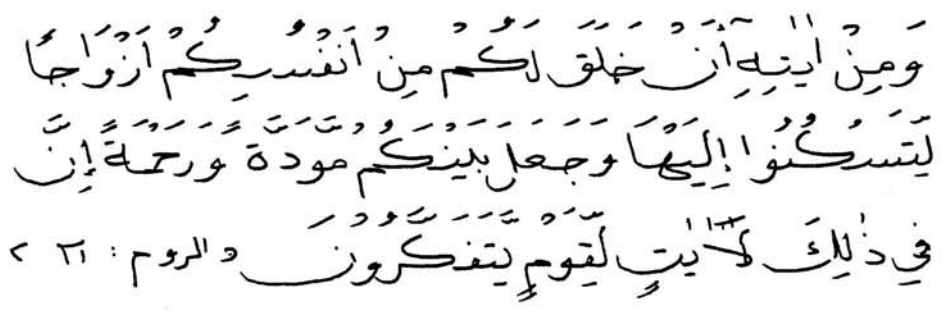 وَمِنْ اٰيٰتِهٖٓ أَنْ خَلَقَ لَكُمْ مِنْ اَنْفُسِكُمْ اَزْوَاجًا
لِّتَسْكُنُوْا إِلَيْهَا وَجَعَلَ بَيْنَكُمْ مَّوَدَّةً وَّرَحْمَةً إِنَّ
فِي ذٰلِكَ لَاٰيٰتٍ لِّقَوْمٍ يَّتَفَكَّرُوْنَ « الروم : ٢١ »